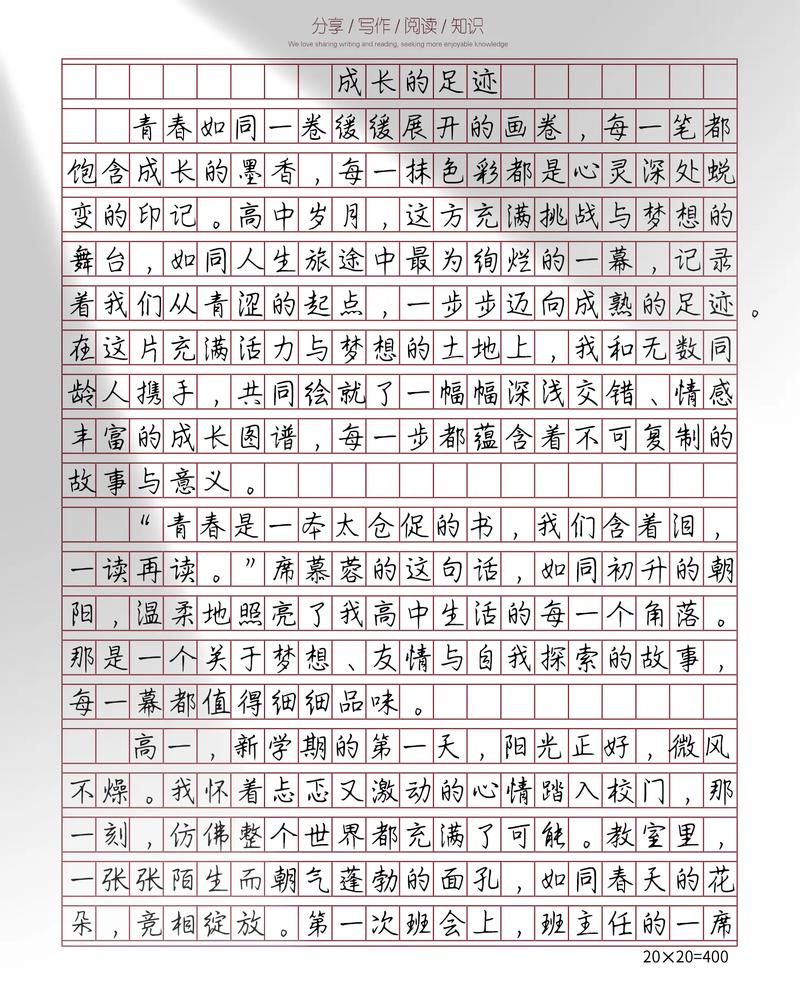 分享 / 写作 / 阅读 / 知识
We love sharing writing and reading, seeking more enjoyable knowledge
成长的足迹
青春如同一卷缓缓展开的画卷，每一笔都
饱含成长的墨香，每一抹色彩都是心灵深处蜕
变的印记。高中岁月，这方充满挑战与梦想的
舞台，如同人生旅途中最为绚烂的一幕，记录
着我们从青涩的起点，一步步迈向成熟的足迹。
在这片充满活力与梦想的土地上，我和无数同
龄人携手，共同绘就了一幅幅深浅交错、情感
丰富的成长图谱，每一步都蕴含着不可复制的
故事与意义。
“青春是一本太仓促的书，我们含着泪，
一读再读。”席慕蓉的这句话，如同初升的朝
阳，温柔地照亮了我高中生活的每一个角落。
那是一个关于梦想、友情与自我探索的故事，
每一幕都值得细细品味。
高一，新学期的第一天，阳光正好，微风
不燥。我怀着忐忑又激动的心情踏入校门，那
一刻，仿佛整个世界都充满了可能。教室里，
一张张陌生而朝气蓬勃的面孔，如同春天的花
朵，竞相绽放。第一次班会上，班主任的一席
20×20=400